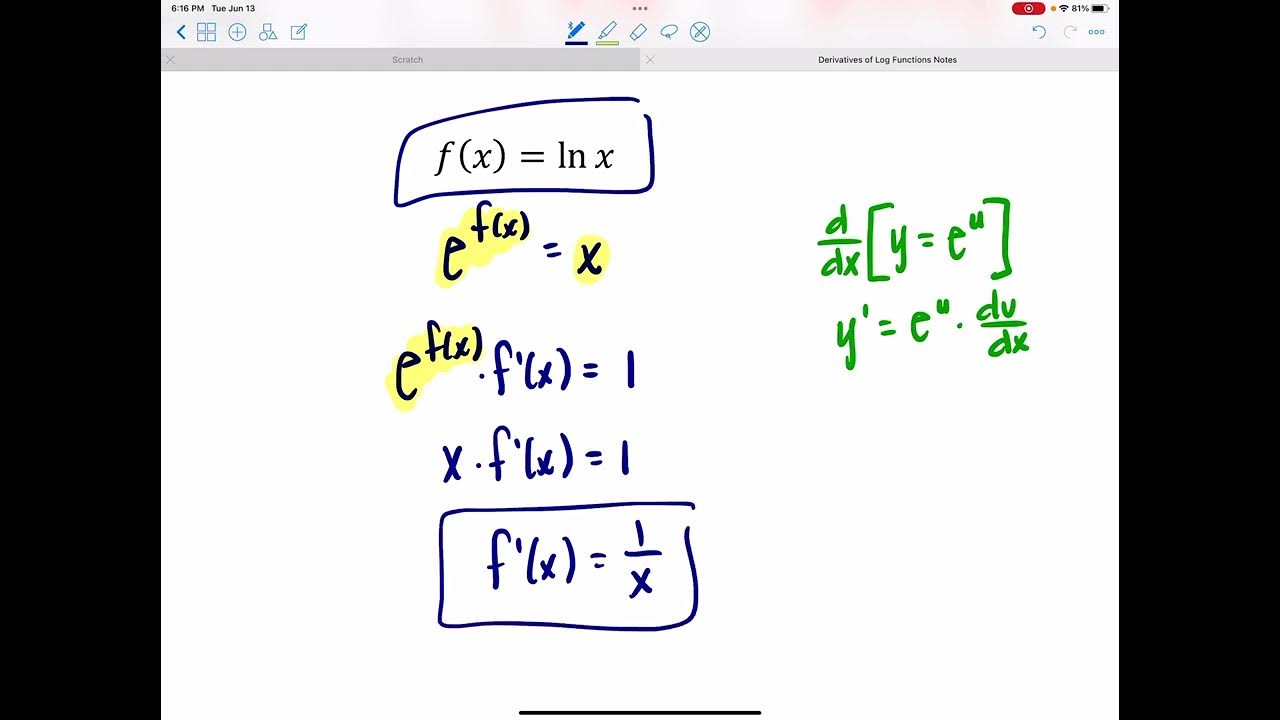 6:16 PM Tue Jun 13
81%
Scratch
Derivatives of Log Functions Notes
f(x) = ln x
e^{f(x)} = x
e^{f(x)} · f'(x) = 1
x · f'(x) = 1
f'(x) = 1/x
d/dx [y = e^u]
y' = e^u · du/dx